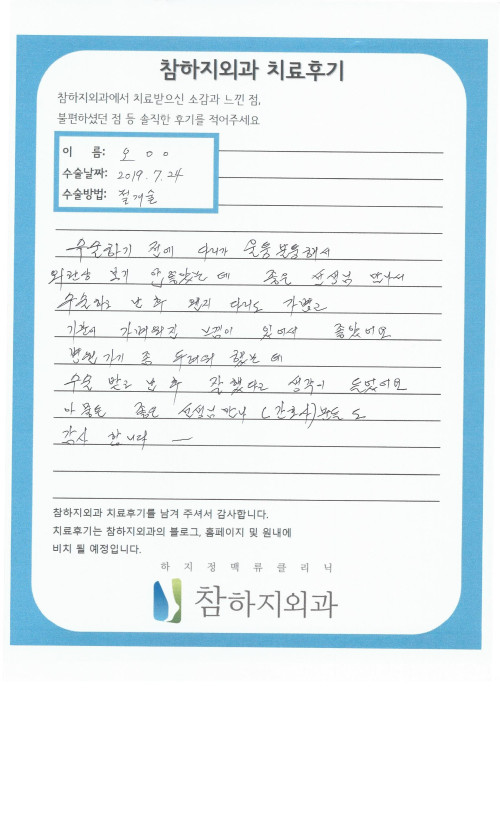 참하지외과 치료후기
참하지외과에서 치료받으신 소감과 느낀 점,
불편하셨던 점 등 솔직한 후기를 적어주세요
이 름: 오 ㅇ ㅇ
수술날짜: 2019. 7. 24
수술방법: 절개술
수술하기 전에 다리가 울퉁불퉁해서
외관상 보기 안좋았는데 좋은 선생님 만나서
수술하고 난 후 왠지 다리도 가볍고
기분이 가벼워진 느낌이 있어서 좋았어요
병원 가기 좀 두려워 했는데
수술 받고 난 후 잘했다고 생각이 들었어요
좋은 선생님 만나 (간호사)분들도
감사 합니다 ―
참하지외과 치료후기를 남겨 주셔서 감사합니다.
치료후기는 참하지외과의 블로그, 홈페이지 및 원내에
비치 될 예정입니다.
하지정맥류클리닉
참하지외과